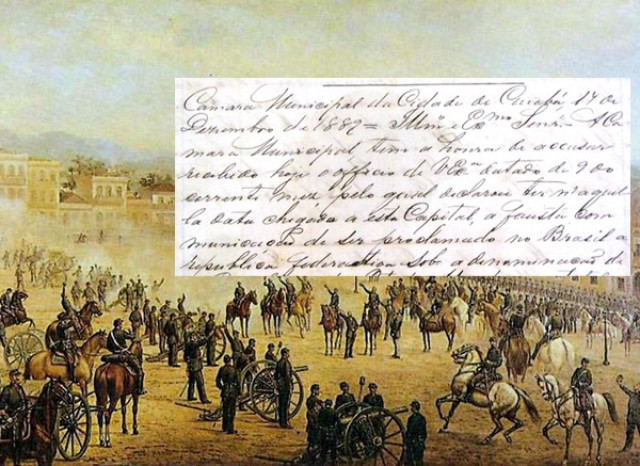 Camara Municipal da Cidade de Cuiabá 17 de
Dezembro de 1889 = Illmo e Exmo Senr. = A Ca
mara Municipal tem a honra de accusar
recebido hoje o officio de VExa datado de 9 do
corrente mez pelo qual declarou ter naquel
la data chegado a esta Capital, a fausta com
municação de ser proclamado no Brasil a
republica federativa sob a denominação de